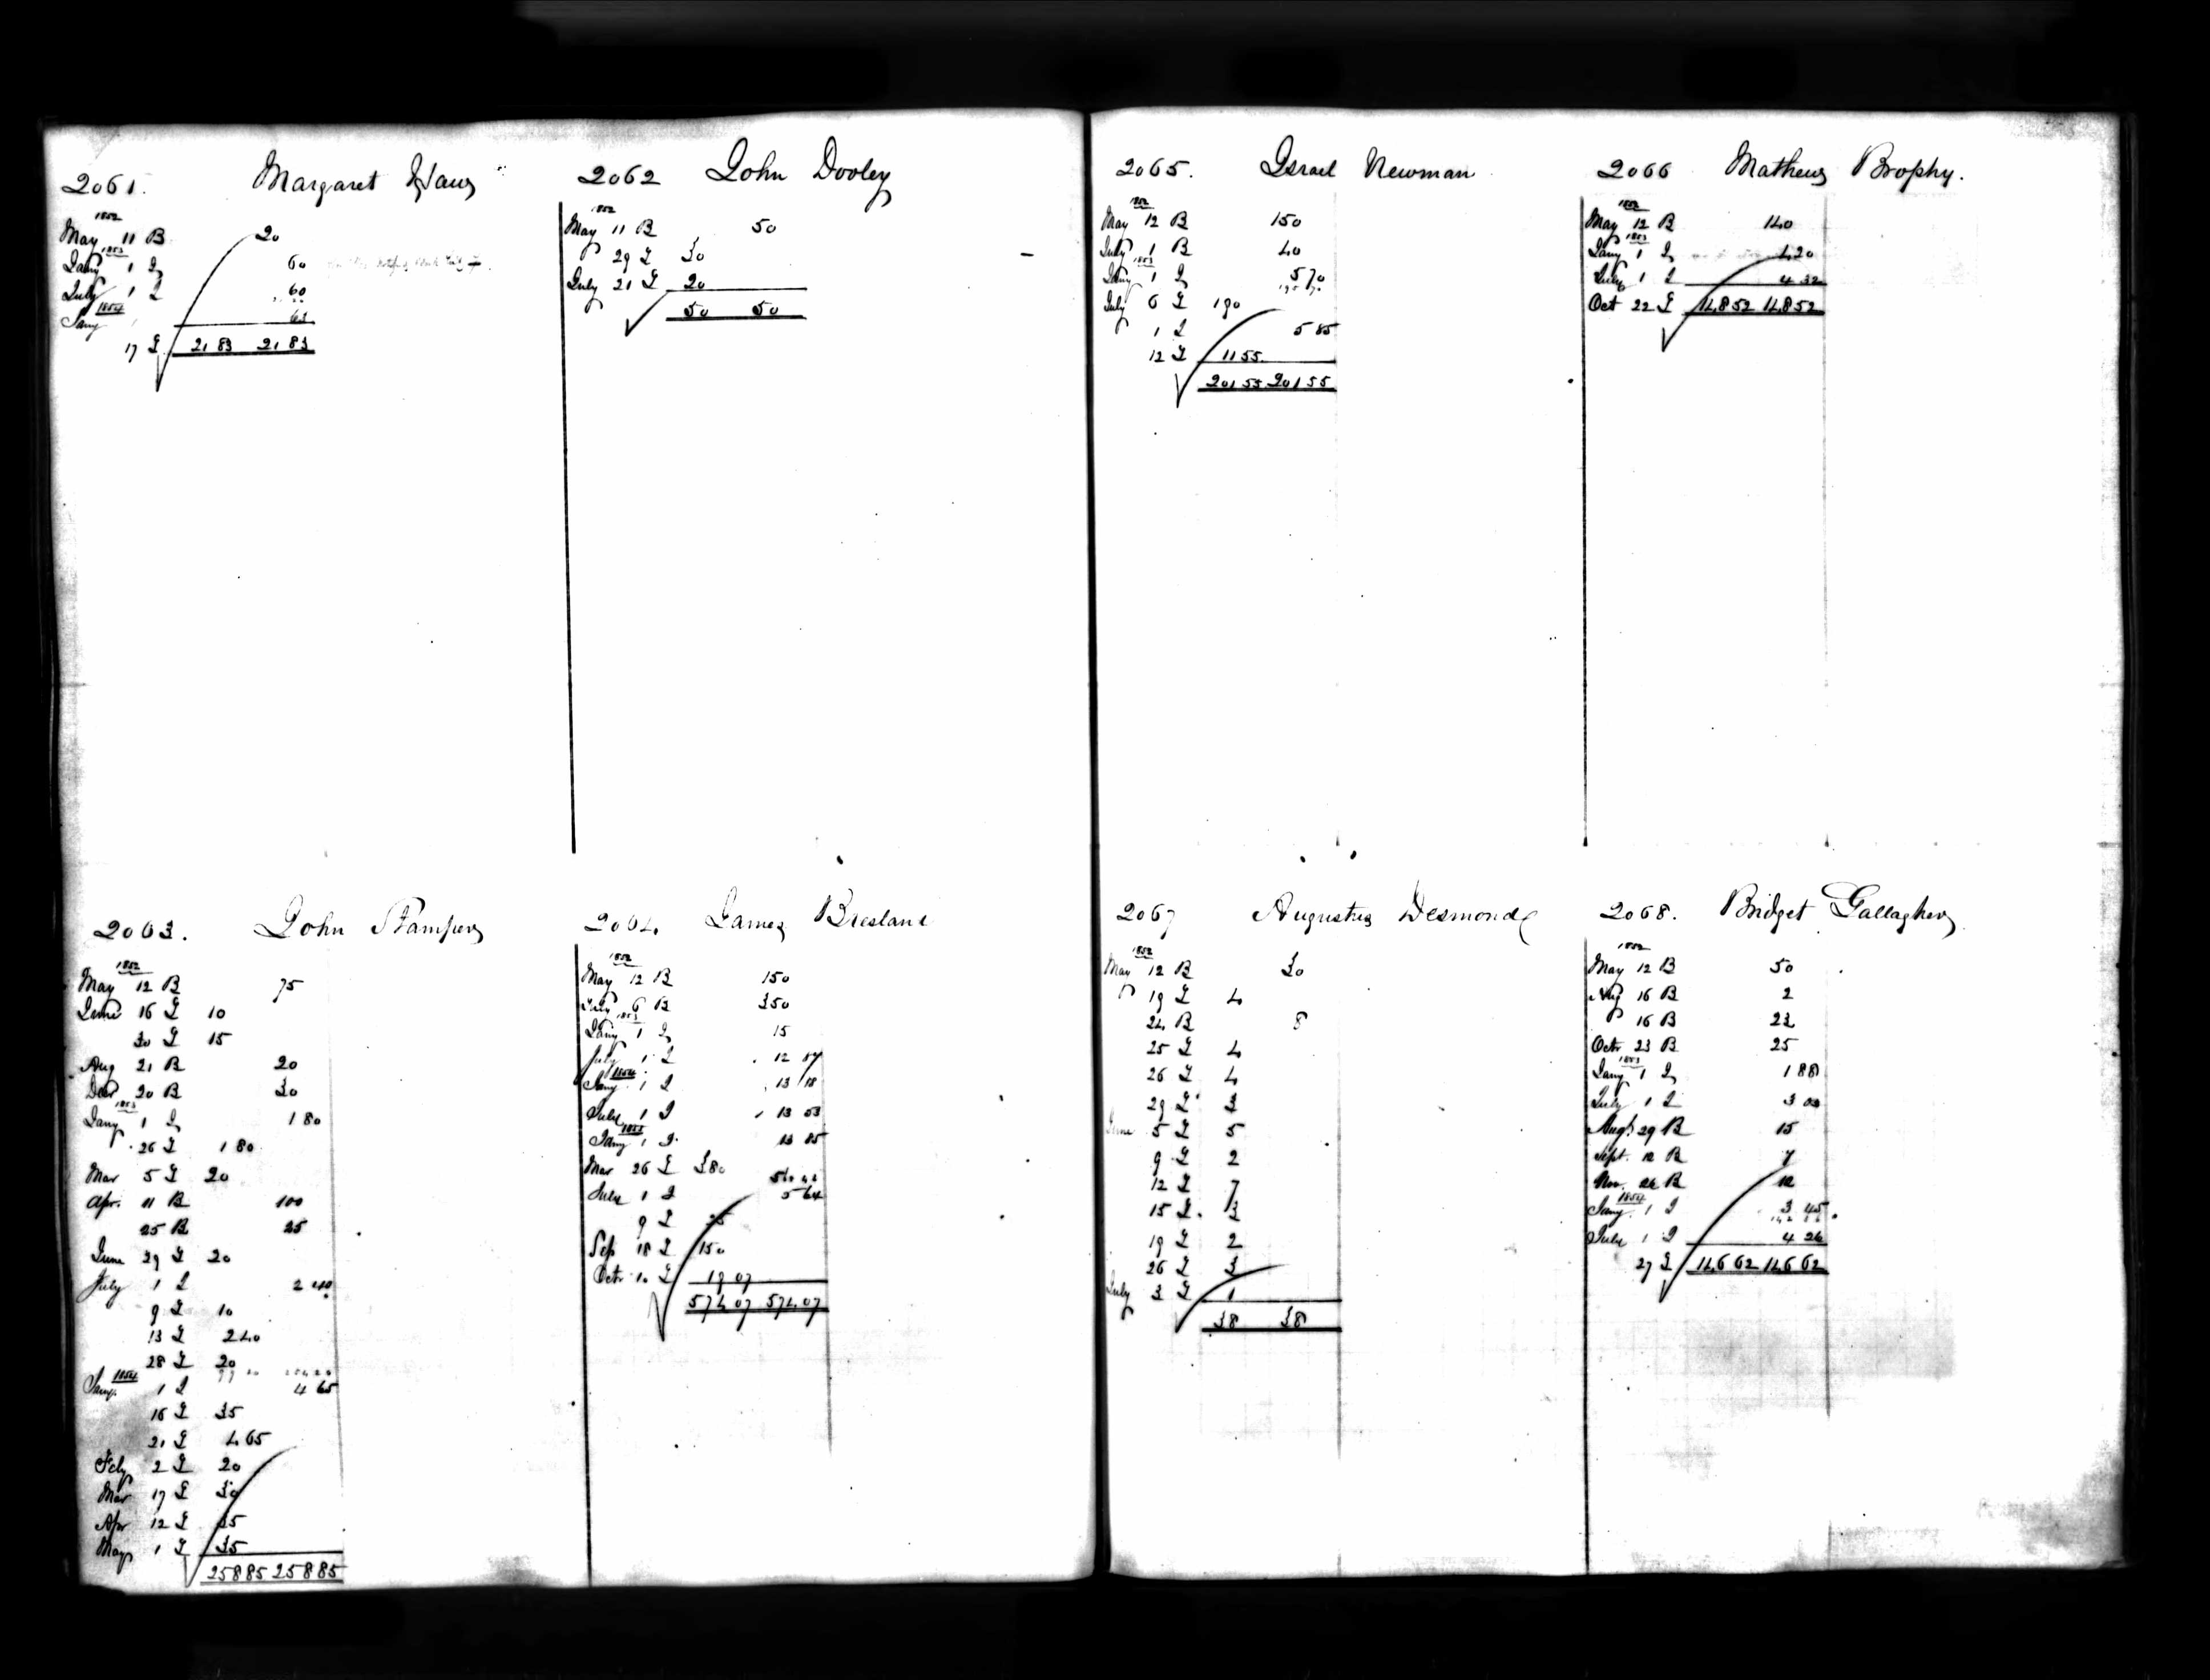 2061. Margaret
1852
May 11 B 20
1853
Jany 1 I 60
July 1 I 60
1854
Jany 63
17 I 21 83 21 83
2062 John Dooley
1852
May 11 B 50
29 I 30
July 21 I 20
50 50
2063. John Stamper
1852
May 12 B 75
June 16 I 10
30 I 15
Aug 21 B 20
Decr 20 B 30
1853
Jany 1 I 1 80
26 I 1 80
Mar 5 I 20
Apr. 11 B 100
25 B 25
June 29 I 20
July 1 I 2 40
9 I 10
13 I 2 40
28 I 20
1854
Jany. 1 I 4 65
16 I 35
21 I 4 65
Feby 2 I 20
Mar 17 I 30
Apr 12 I 35
May 1 I 35
258 85 258 85
2064. James Breslane
1852
May 12 B 150
July 6 B 350
1853
Jany 1 I 15
July 1 I 12 87
1854
Jany 1 I 13 18
July 1 I 13 53
1855
Jany 1 I 13 85
Mar 26 I 380
July 1 I 5 64
9 I 25
Sep 18 I 150
Octr 10 I 19 07
574 07 574 07
2065. Israel Newman
1852
May 12 B 150
July 1 B 40
1853
Jany 1 I 5 70
July 6 I 190
1 I 5 85
12 I 11 55
201 55 201 55
2066 Mathew Brophy.
1852
May 12 B 140
1853
Jany 1 I 4 20
July 1 I 4 32
Oct 22 I 148 52 148 52
2067 Augustus Desmond
1852
May 12 B 30
19 I 4
24 B 8
25 I 4
26 I 4
29 I 3
June 5 I 5
9 I 2
12 I 7
15 I 3
19 I 2
26 I 3
July 3 I 1
38 38
2068. Bridget Gallagher
1852
May 12 B 50
Aug 16 B 2
16 B 23
Octr 23 B 25
1853
Jany 1 I 1 88
July 1 I 3 03
Augt. 29 B 15
Sept. 12 B 7
Nov. 26 B 12
1854
Jany. 1 I 3 45
July 1 I 4 26
27 I 146 62 146 62